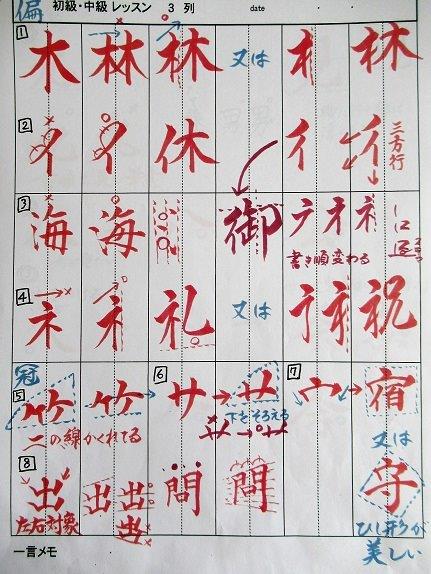 偏 初級・中級 レッスン 3 列 date
1 木 林 林 又は 木 林
2 イ イ 休 イ イ 三方行
3 海 海 氵 御 テ オ ネ
書き順変わる
4 ネ ネ 礼 又は ネ 祝
冠
5 竹 竹 6 サ サ 7 宀 宿
下をそろえる
この線かくれてる
又は
8 出 出 出 問 問 守
出
左右対象
ひし形が
美しい
一言メモ